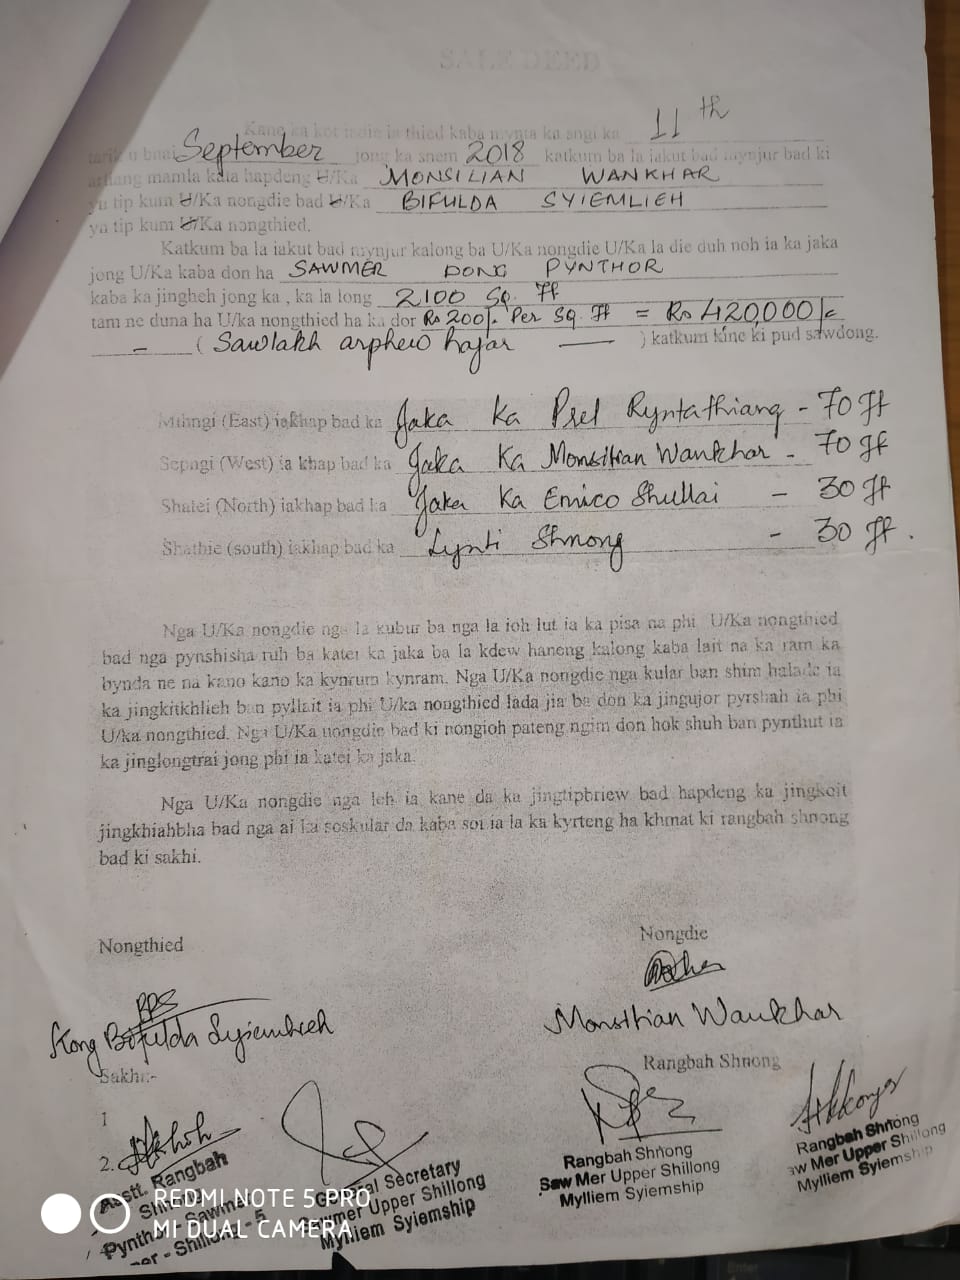 SALE DEED
Kane ka kot indie ia thied kaba mynta ka sngi ka 11th
tarik u bnai September jong ka snem 2018 katkum ba la iakut bad mynjur bad ki
arliang mamla kata hapdeng U/Ka MONSILIAN WANKHAR
yu tip kum U/Ka nongdie bad U/Ka BIFULDA SYIEMLIEH
yu tip kum U/Ka nongthied.
Katkum ba la iakut bad mynjur kalong ba U/Ka nongdie U/Ka la die duh noh ia ka jaka
jong U/Ka kaba don ha SAWMER DONG PYNTHOR
kaba ka jingheh jong ka , ka la long 2100 Sq. ft
tam ne duna ha U/ka nongthied ha ka dor Rs 200/- Per Sq ft = Rs 420,000/-
- ( Sawlakh arphew hajar — ) katkum kine ki pud sawdong.
Mihngi (East) iakhap bad ka Jaka Ka Prel Ryntathiang - 70 ft
Sepngi (West) ia khap bad ka Jaka Ka Monsilian Wankhar - 70 ft
Shatei (North) iakhap bad ka Jaka Ka Emico Shullai - 30 ft
Shathie (south) iakhap bad ka Lynti Shnong - 30 ft.
Nga U/Ka nongdie nga la kubur ba nga la ioh lut ia ka pisa na phi U/Ka nongthied
bad nga pynshisha ruh ba katei ka jaka ba la kdew haneng kalong kaba lait na ka ram ka
bynda ne na kano kano ka kynrum kynram. Nga U/Ka nongdie nga kular ban shim halade ia
ka jingkitkhlieh ban pyllait ia phi U/ka nongthied lada jia ba don ka jingujor pyrshah ia phi
U/ka nongthied. Nga U/Ka nongdie bad ki nongioh pateng ngim don hok shuh ban pynthut ia
ka jinglongtrai jong phi ia katei ka jaka.
Nga U/Ka nongdie nga leh ia kane da ka jingtipbriew bad hapdeng ka jingkoit
jingkhiahbha bad nga ai ka soskular da kaba soi ia la ka kyrteng ha khmat ki rangbah shnong
bad ki sakhi.
Nongthied
Nongdie
Kong Bifulda Syiemlieh
Monsilian Wankhar
Sakhi:-
Rangbah Shnong
1
2.
Asstt. Rangbah
Pynthor - Sawmer
Shillong - 5
General Secretary
Sawmer Upper Shillong
Mylliem Syiemship
Rangbah Shnong
Saw Mer Upper Shillong
Mylliem Syiemship
Rangbah Shnong
Saw Mer Upper Shillong
Mylliem Syiemship
REDMI NOTE 5 PRO
MI DUAL CAMERA